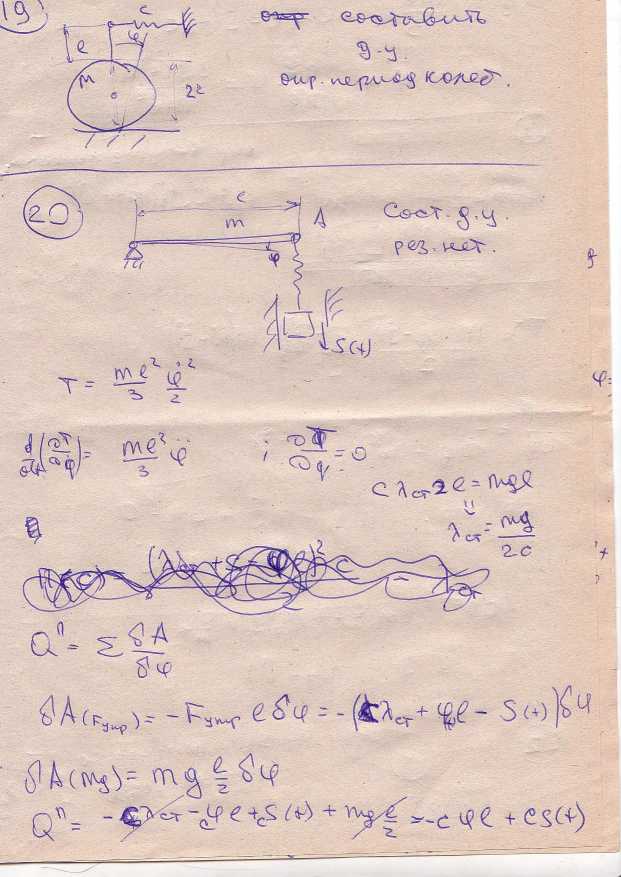 19
c
φ
l
M
2r
составить
д.у.
опр. период колеб.
20
l
m
A
φ
S(t)
Сост. д.у.
рез. нет.
T = ml²/3 φ̇²/2
d/dt(∂T/∂φ̇) = ml²/3 φ̈ ; ∂T/∂q = 0
c λст 2l = mgl
λст = mg/2c
Qⁿ = Σ δA/δφ
δA(Fупр) = -Fупр l δφ = -(cλст + φl - S(t))δφ
δA(mg) = mg l/2 δφ
Qⁿ = -cλст - cφl + cS(t) + mg l/2 = -cφl + cS(t)